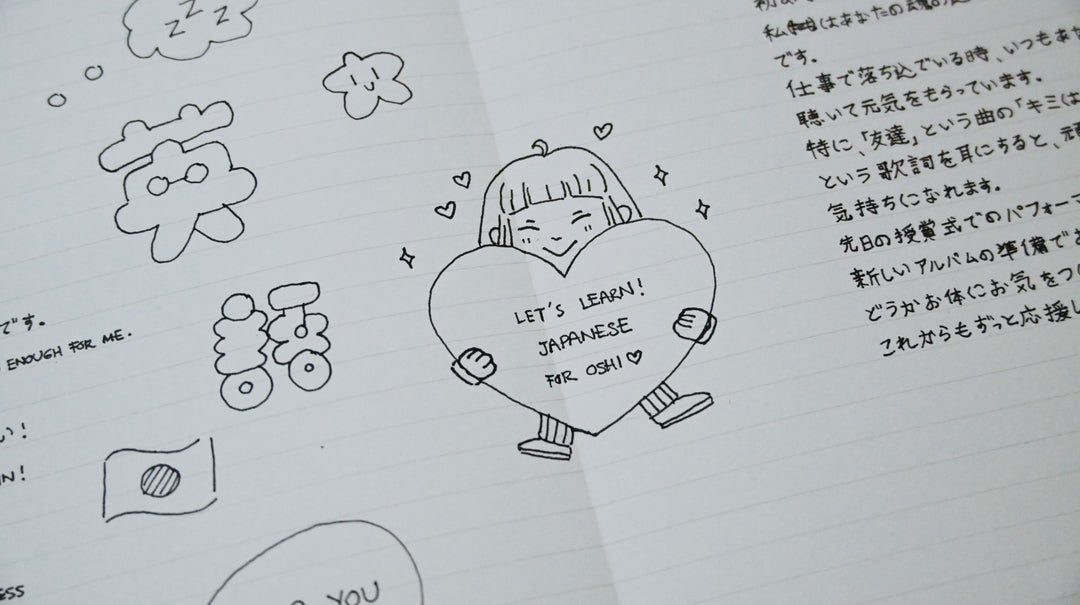 Z Z Z
です。
ENOUGH FOR ME.
い!
N!
ESS
YOU
LET'S LEARN!
JAPANESE
FOR OSHI♡
私はあなたの
です。
仕事で落ち込でいる時、いつもあ
聴いて元気をもらっています。
特に、「友達」という曲の「キミは
という歌詞を耳にすると、元
気持ちになれます。
先日の授賞式でのパフォーマ
新しいアルバムの準備で
どうかお体にお気をつ
これからもずっと応援し